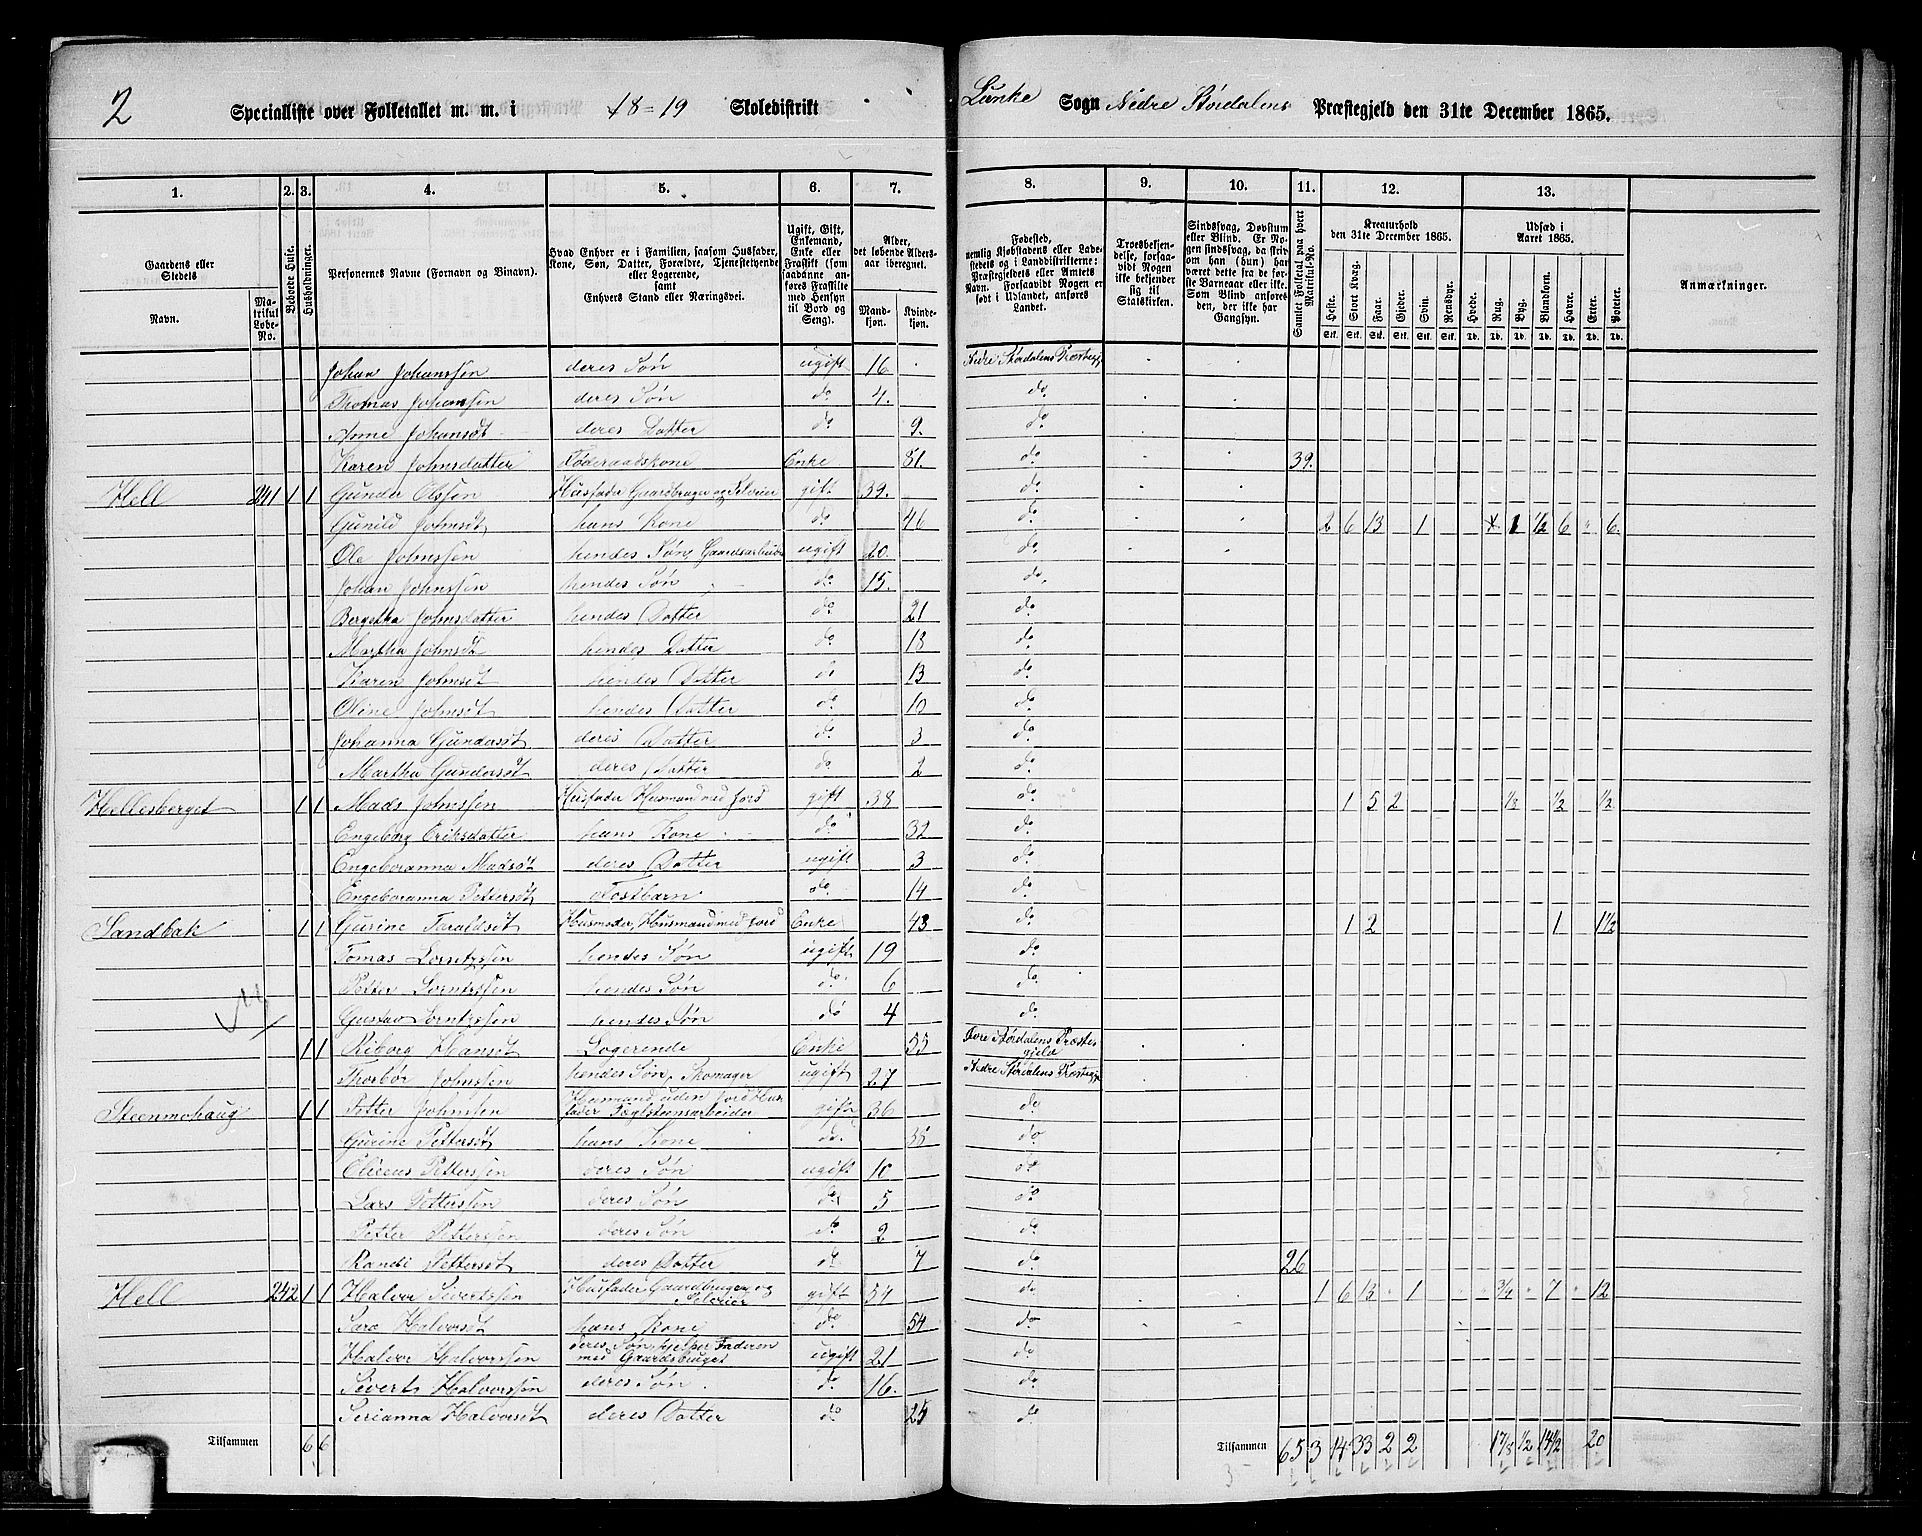 2 Specialliste over Folketallet m. m. i 18-19 Skoledistrikt Lanke Sogn Nedre Størdalens Præstegjeld den 31te December 1865.
1. 2. 3. 4. 5. 6. 7. 8. 9. 10. 11. 12. 13.
Gaardens eller Stedets
Navn.
Matrikul Løbe-No.
Beboede Huse.
Husholdninger.
Personernes Navne (Fornavn og Binavn).
Hvad Enhver er i Familien, saasom Husfader, Kone, Søn, Datter, Forældre, Tjenestetyende eller Logerende, samt Enhvers Stand eller Næringsvei.
Ugift, Gift, Enkemand, Enke eller Fraskilt (som saadanne anføres Fraskilte med Hensyn til Bord og Seng).
Alder, det løbende Aldersaar iberegnet.
Mandkjøn. Kvindekjøn.
Fødested, nemlig Kjøbstadens eller Ladestedets og i Landdistrikterne: Præstegjeldets eller Amtets Navn. Forsaavidt Nogen er født i Udlandet, anføres Landet.
Troesbekjendelse, forsaavidt Nogen ikke bekjender sig til Statskirken.
Sindssvag, Døvstum eller Blind. Er Nogen sindssvag, da skrives om han (hun) har været dette fra de første Barneaar eller ikke. Som Blind anføres den, der ikke har Gangsyn.
Samlet Folketal paa hvert Matrikul-No.
Kreaturhold den 31te December 1865.
Heste. Stort Kvæg. Faar. Gjeder. Svin. Rensdyr.
Udsæd i Aaret 1865.
Hvede. Rug. Byg. Blandkorn. Havre. Erter. Poteter.
Anmærkninger.
Johan Johanssen deres Søn ugift 16. Nedre Størdalens Præstegj
Thomas Johansen deres Søn do 4. do
Anne Johansdt deres Datter do 9. do
Karen Johnsdatter Føderaadskone Enke 81. do 39.
Hell 241 1 1 Gunder Olssen Husfader Gaardbruger og Selveier gift 39. do
Gunild Johnsdt hans Kone do 46 do 2 6 13 1 1 1/2 6 6.
Ole Johnssen hendes Søn, Gaardsarbeider ugift 20. do
Johan Johnssen hendes Søn do 15. do
Bergetha Johnsdatter hendes Datter do 21 do
Martha Johnsdt hendes Datter do 18 do
Karen Johnsdt hendes Datter do 13 do
Oline Johnsdt hendes Datter do 10 do
Johanna Gundersdt deres Datter do 3 do
Martha Gundersdt deres Datter do 2 do
Hellesberget 1 1 Mads Johnssen Husfader Husmand med Jord gift 38 do 1 5 2 1/8 1/2 1/2
Engeborg Eriksdatter hans Kone do 32 do
Engeboranna Madsdt deres Datter ugift 3 do
Engeboranna Pettersdt Fostbarn do 14 do
Sandbak 1 1 Gurine Taraldsdt Husmoder, Husmand med Jord Enke 43 do 1 2 1 1 1/2
Tomas Lorntzsen hendes Søn ugift 19 do
Petter Lorntzsen hendes Søn do 6 do
Gustav Lorntzsen hendes Søn do 4 do
1 1 Kiborg Hansdt Logerende Enke 55 Øvre Størdalens Præstegjeld
Thorbør Johnssen hendes Søn, Skomager ugift 27 Nedre Størdalens Præstegj
Steenmohaug 1 1 Petter Johnsen Husmand uden Jord Husfader Teglsteensarbeider gift 36 do
Gurine Pettersdt hans Kone do 35 do
Petterssen deres Søn ugift 10 do
Lars Petterssen deres Søn do 5 do
Petter Petterssen deres Søn do 2 do
Randi Pettersdt deres Datter do 7 do 26
Hell 242 1 1 Halvor Sivertssen Husfader Gaardbruger og Selveier gift 54 do 1 6 13 1 3/4 7 12
Sara Halvorsdt hans Kone do 54 do
Halvor Halvorssen deres Søn, hjelper Faderen med Gaardsbruget ugift 21 do
Siverts Halvorssen deres Søn do 16. do
Serianna Halvorsdt deres Datter do 25 do
Tilsammen 6 6 Tilsammen 65 3 14 33 2 2 1 7/8 1/2 14 1/2 20
3